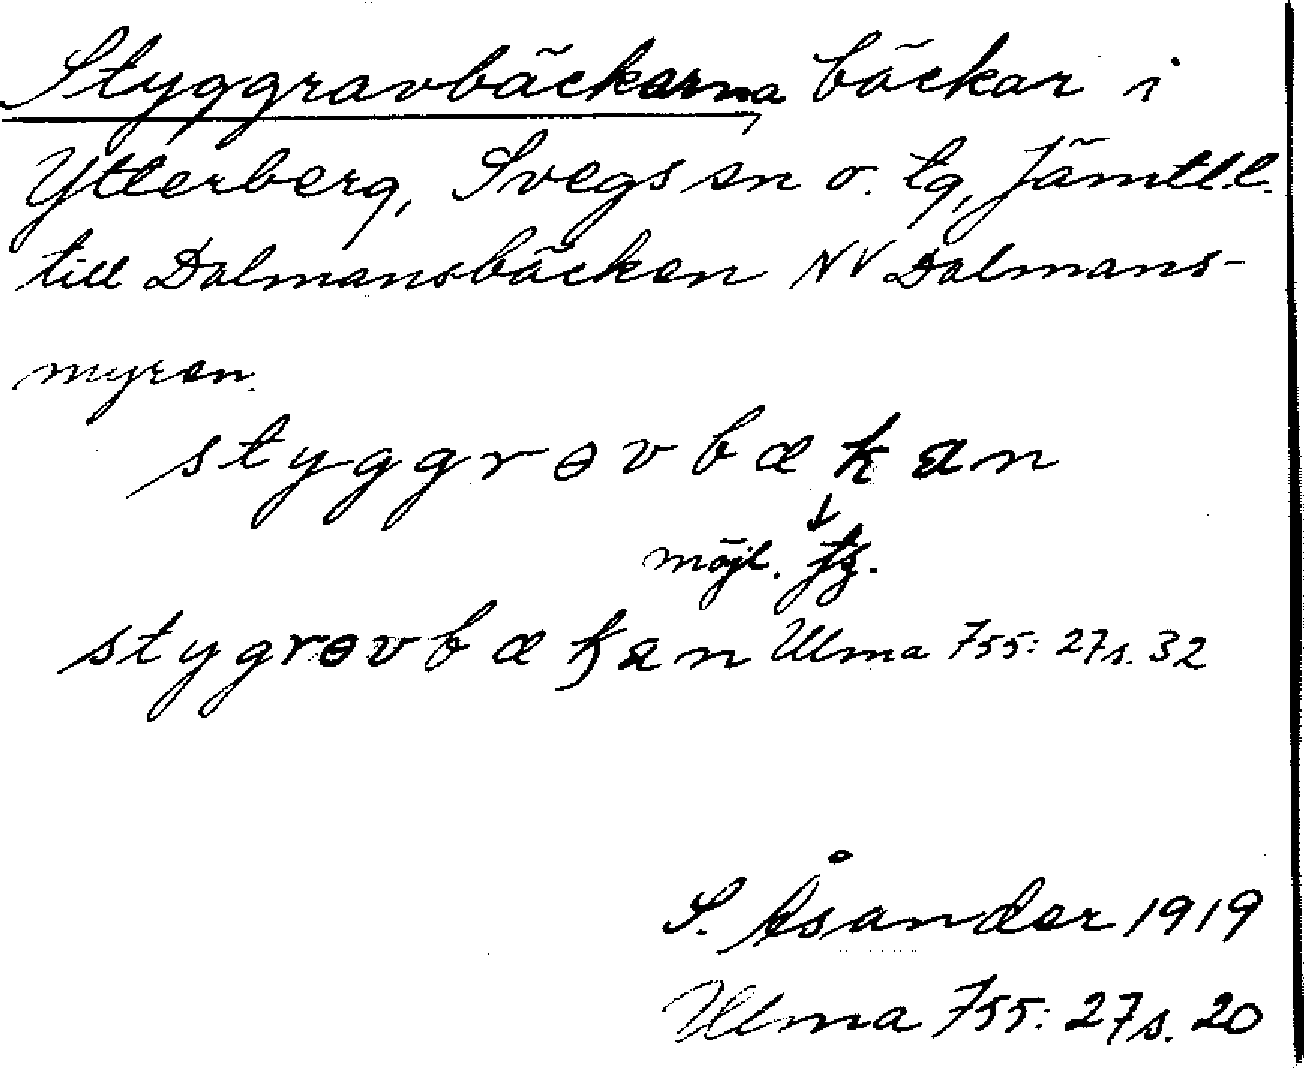 Styggravbäckarna bäckar i
Ytterberg, Svegs sn o. tg, Jämtl.l.
till Dalmansbäcken NV Dalmans-
myren.
styggrɵvbækan
möjl.
stygrɵvbæ an Ulma 755: 27 s. 32
S. Åsander 1919
Ulma 755: 27 s. 20